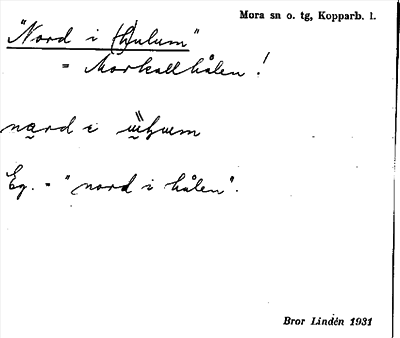 Mora sn o. tg, Kopparb. l.
"Nord i (h)ulum"
= Morkallhålen!
nærd i
Eg. = "nord i hålen".
Bror Lindén 1931